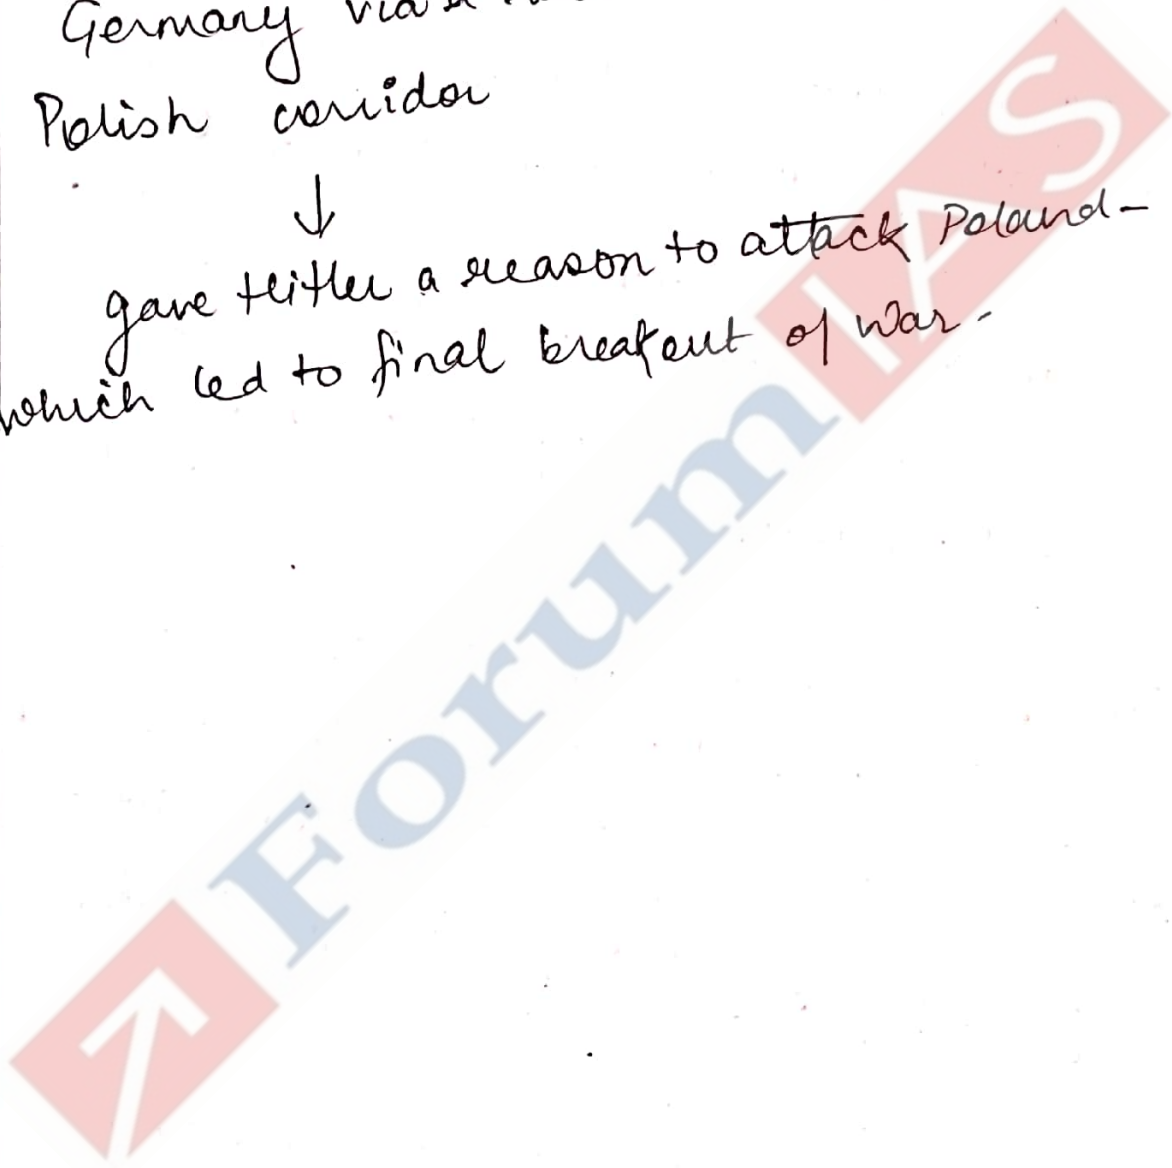 Germany via a
Polish corridor
↓
gave Hitler a reason to attack Poland-
which led to final breakout of war.
Forum IAS